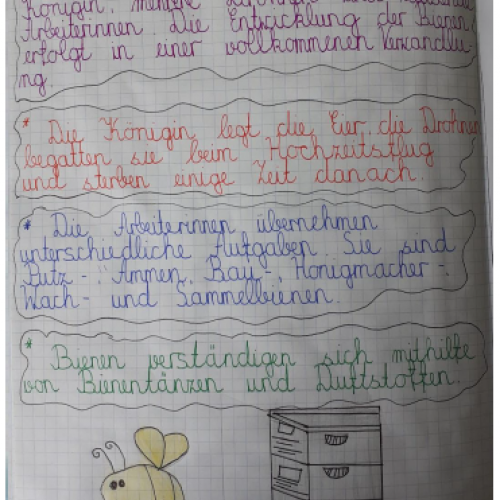 Königin, mehrere
Arbeiterinnen Die Entwicklung der Bienen
erfolgt in einer vollkommenen Verwandlu-
ng.
* Die Königin legt die Eier, die Drohnen
begatten sie beim Hochzeitsflug
und sterben einige Zeit danach.
* Die Arbeiterinnen übernehmen
unterschiedliche Aufgaben Sie sind
Putz-, Ammen, Bau-, Honigmacher-,
Wach- und Sammelbienen.
* Bienen verständigen sich mithilfe
von Bienentänzen und Duftstoffen.